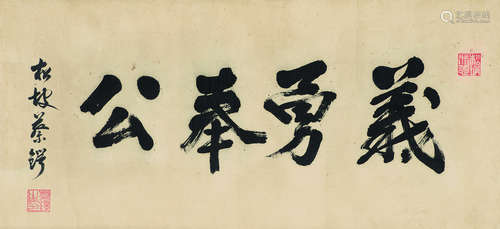 義勇奉公
松坡蔡鍔